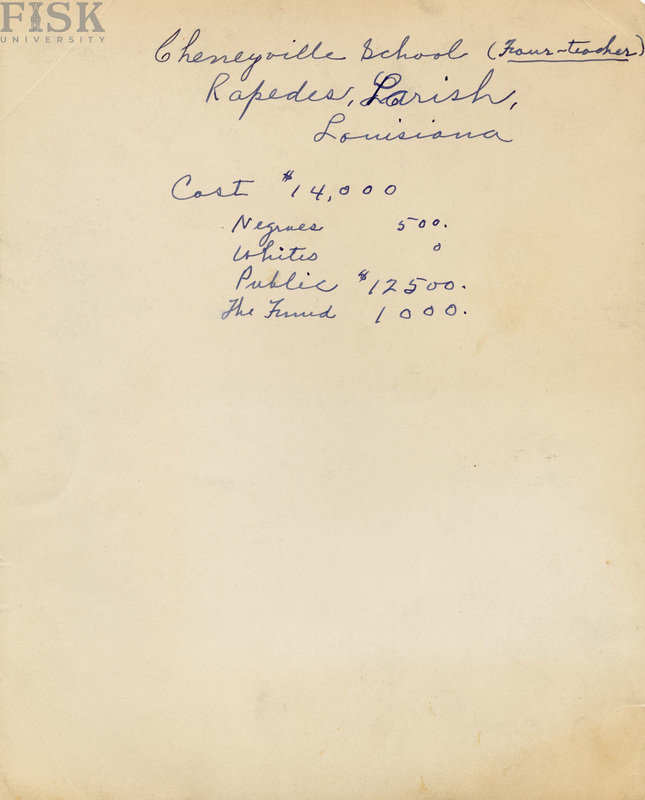 FISK
UNIVERSITY
Cheneyville School (Four-teacher)
Rapedes, Parish,
Louisiana
Cost $14,000
Negroes 500.
Whites 0
Public $12500.
The Fund 1000.